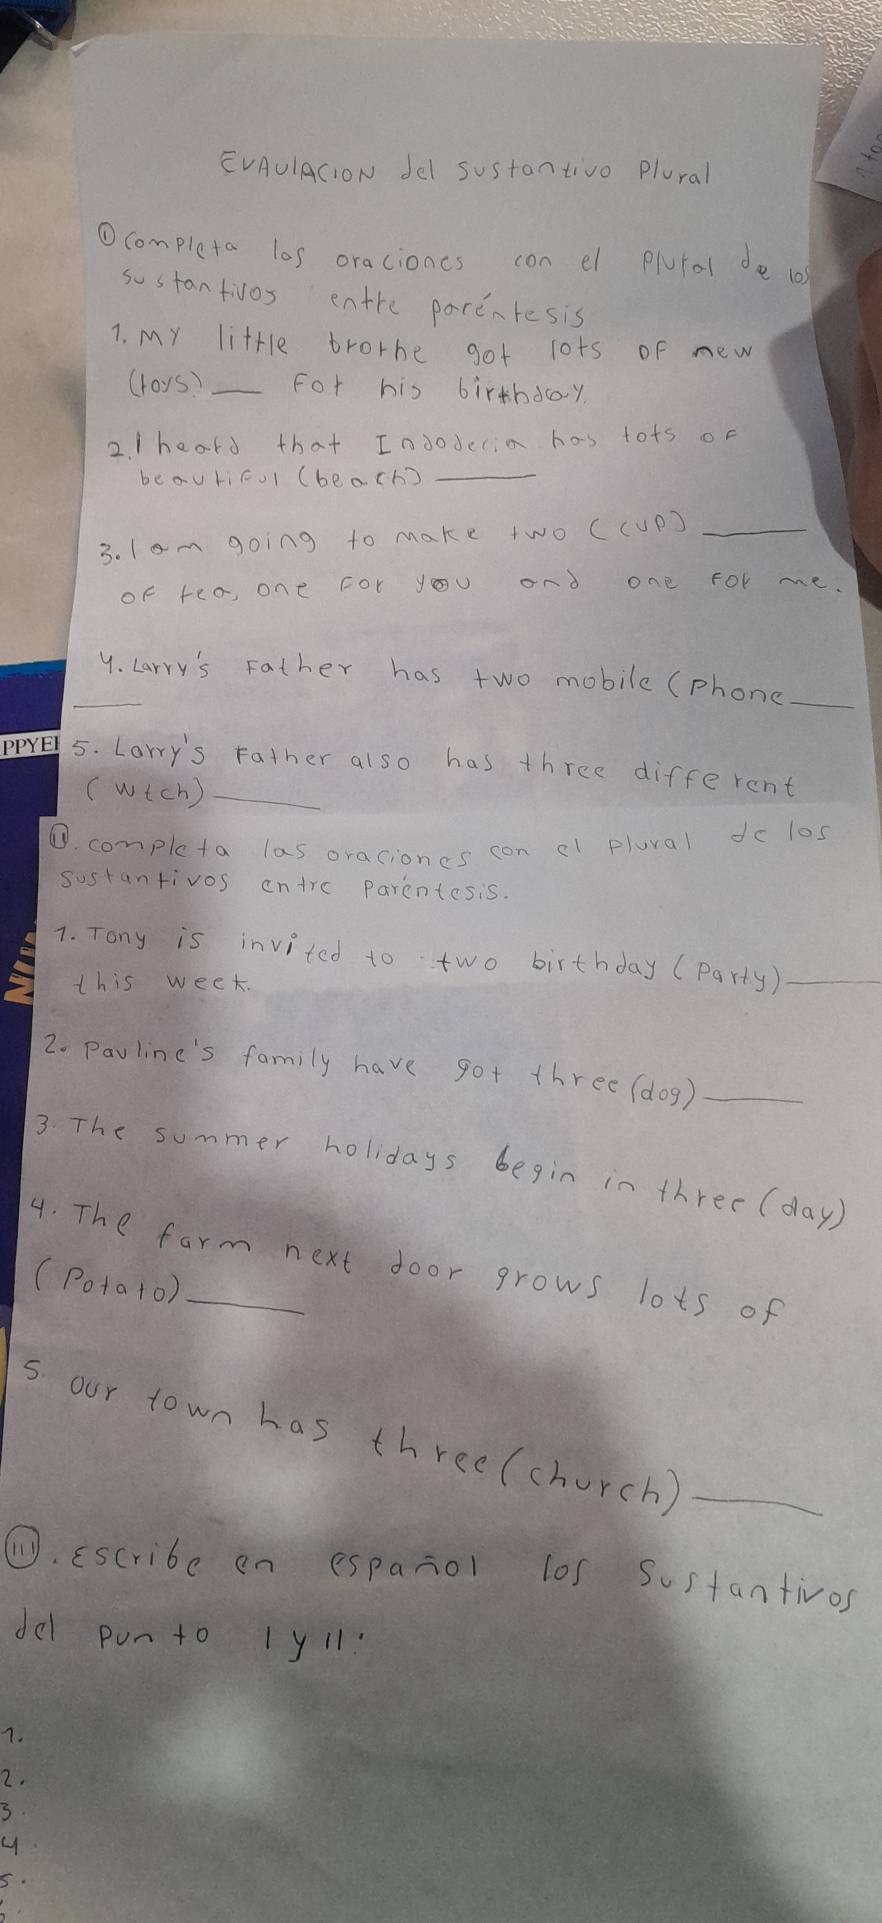 EVAUlACION del sustantivo Plural
① completa las oraciones con el plural de los
sustantivos entre paréntesis
1. MY little brothe got lots OF new
(toys) ___ For his birthday.
2. I heard that Indodecia has lots OF
beautiful (beach) ___
3. I am going to make two (cup) ___
OF tea, one for you and one For me.
4. Larry's Father has two mobile (phone ___
___
PPYE
5. Larry's Father also has three different
(wtch) ___
Ⅱ. completa las oraciones con el plural de los
sustantivos entre paréntesis.
1. Tony is invited to two birthday (Party) ___
this week.
2. Pauline's family have got three (dog) ___
3. The summer holidays begin in three (day)
4. The farm next door grows lots of
(Potato) ___
5. our town has three (church) ___
Ⅲ. Escribe en español los sustantivos
del punto I y II:
1.
2.
3.
4.
5.